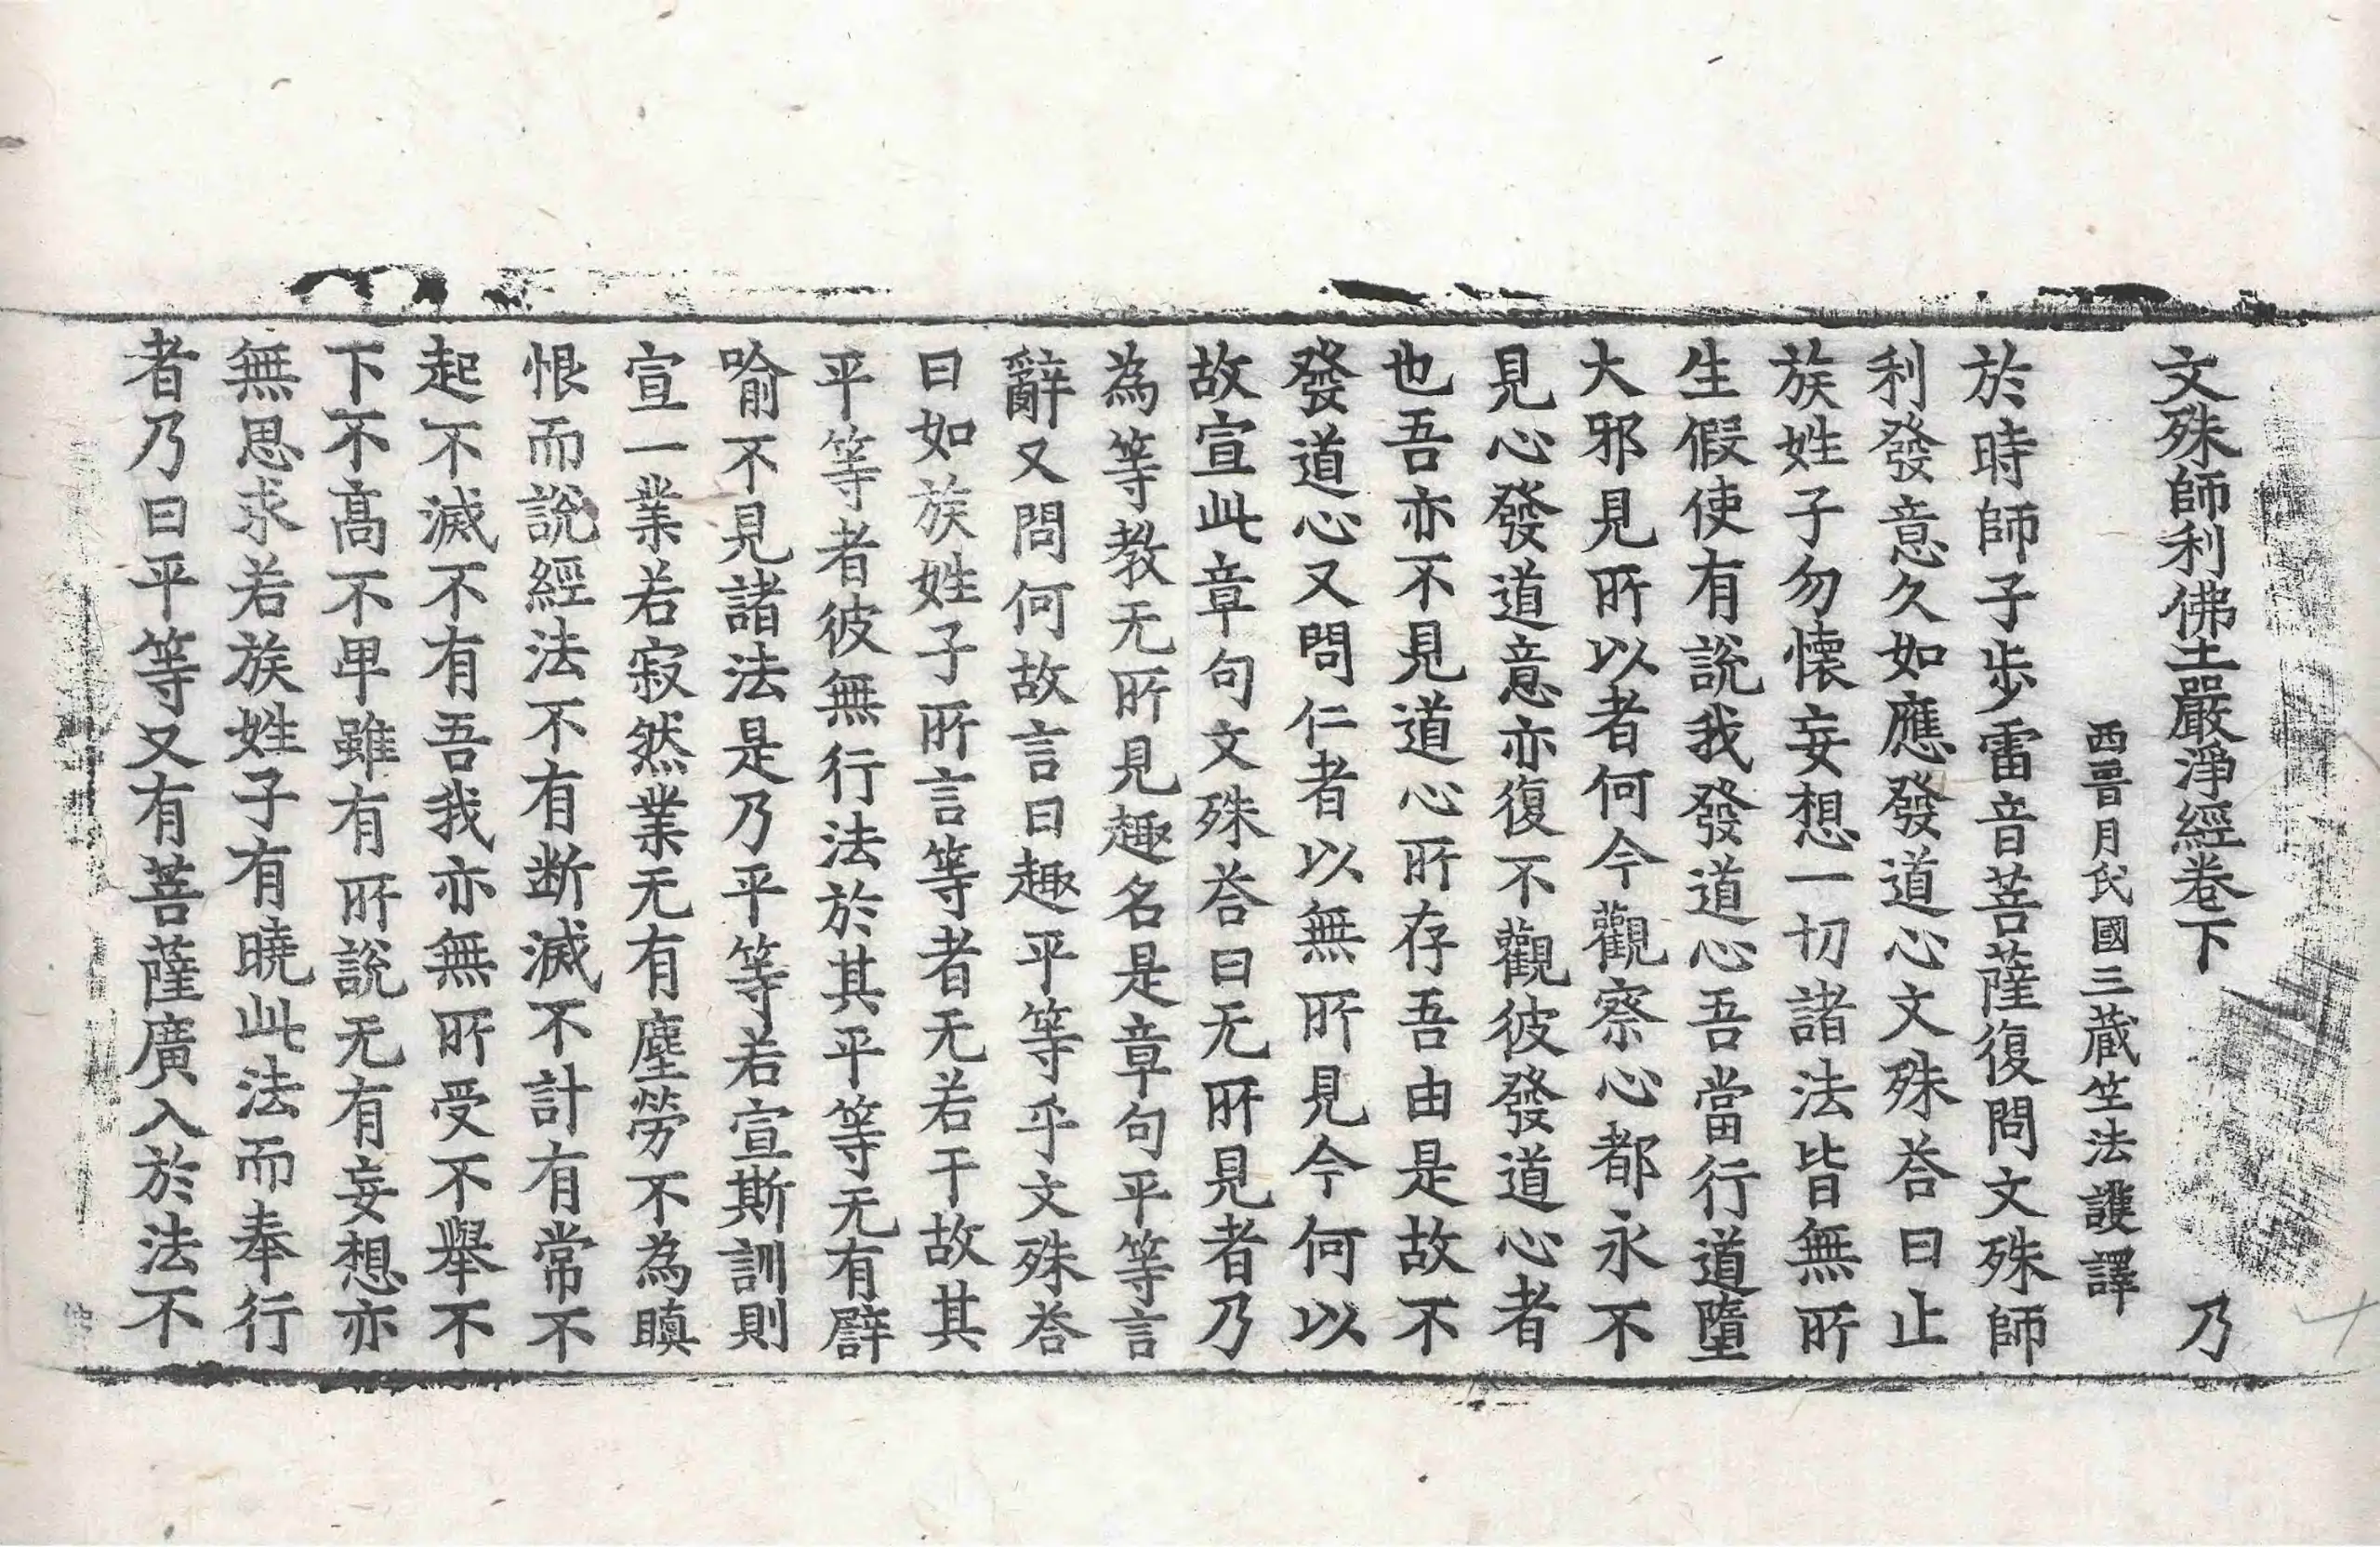 文殊師利佛土嚴淨經卷下 乃
西晉月氏國三蔵竺法護譯
於時師子步雷音菩薩復問文殊師
利發意久如應發道心文殊荅曰止
族姓子勿懷妄想一切諸法皆無所
生假使有說我發道心吾當行道墮
大邪見所以者何今觀察心都永不
見心發道意亦復不觀彼發道心者
也吾亦不見道心所存吾由是故不
發道心又問仁者以無所見今何以
故宣此章句文殊荅曰无所見者乃
為等教无所見趣名是章句平等言
辭又問何故言曰趣平等乎文殊荅
曰如族姓子所言等者无若干故其
平等者彼無行法於其平等无有譬
喻不見諸法是乃平等若宣斯訓則
宣一業若寂然業无有塵勞不為瞋
恨而說經法不有断滅不計有常不
起不滅不有吾我亦無所受不舉不
下不高不卑雖有所說无有妄想亦
無思求若族姓子有曉此法而奉行
者乃曰平等又有菩薩廣入於法不